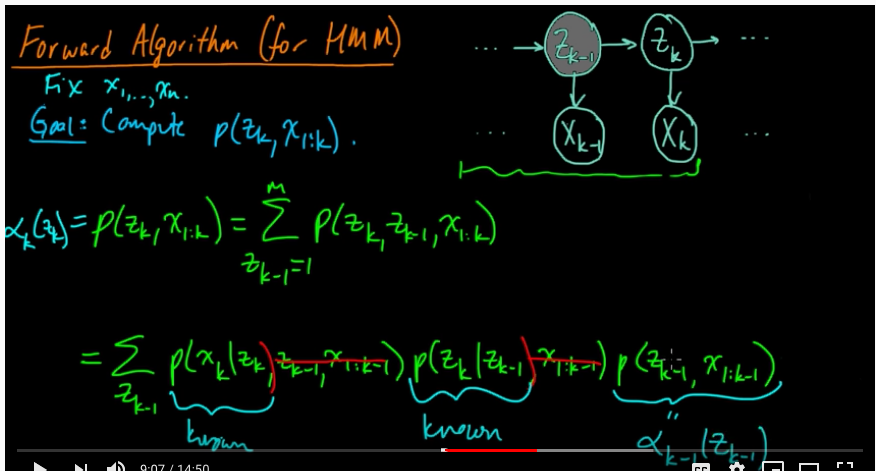 Forward Algorithm (for HMM)
Fix x₁,...,xₙ.
Goal: Compute p(z_k, x_{1:k}).
... → z_{k-1} → z_k → ...
... x_{k-1} x_k ...
α_k(z_k) = p(z_k, x_{1:k}) = Σ_{z_{k-1}=1}^{m} p(z_k, z_{k-1}, x_{1:k})
= Σ_{z_{k-1}} p(x_k|z_k), z_{k-1}, x_{1:k-1}) p(z_k|z_{k-1}), x_{1:k-1}) p(z_{k-1}, x_{1:k-1})
known known "
α_{k-1}(z_{k-1})
9:07 / 14:50